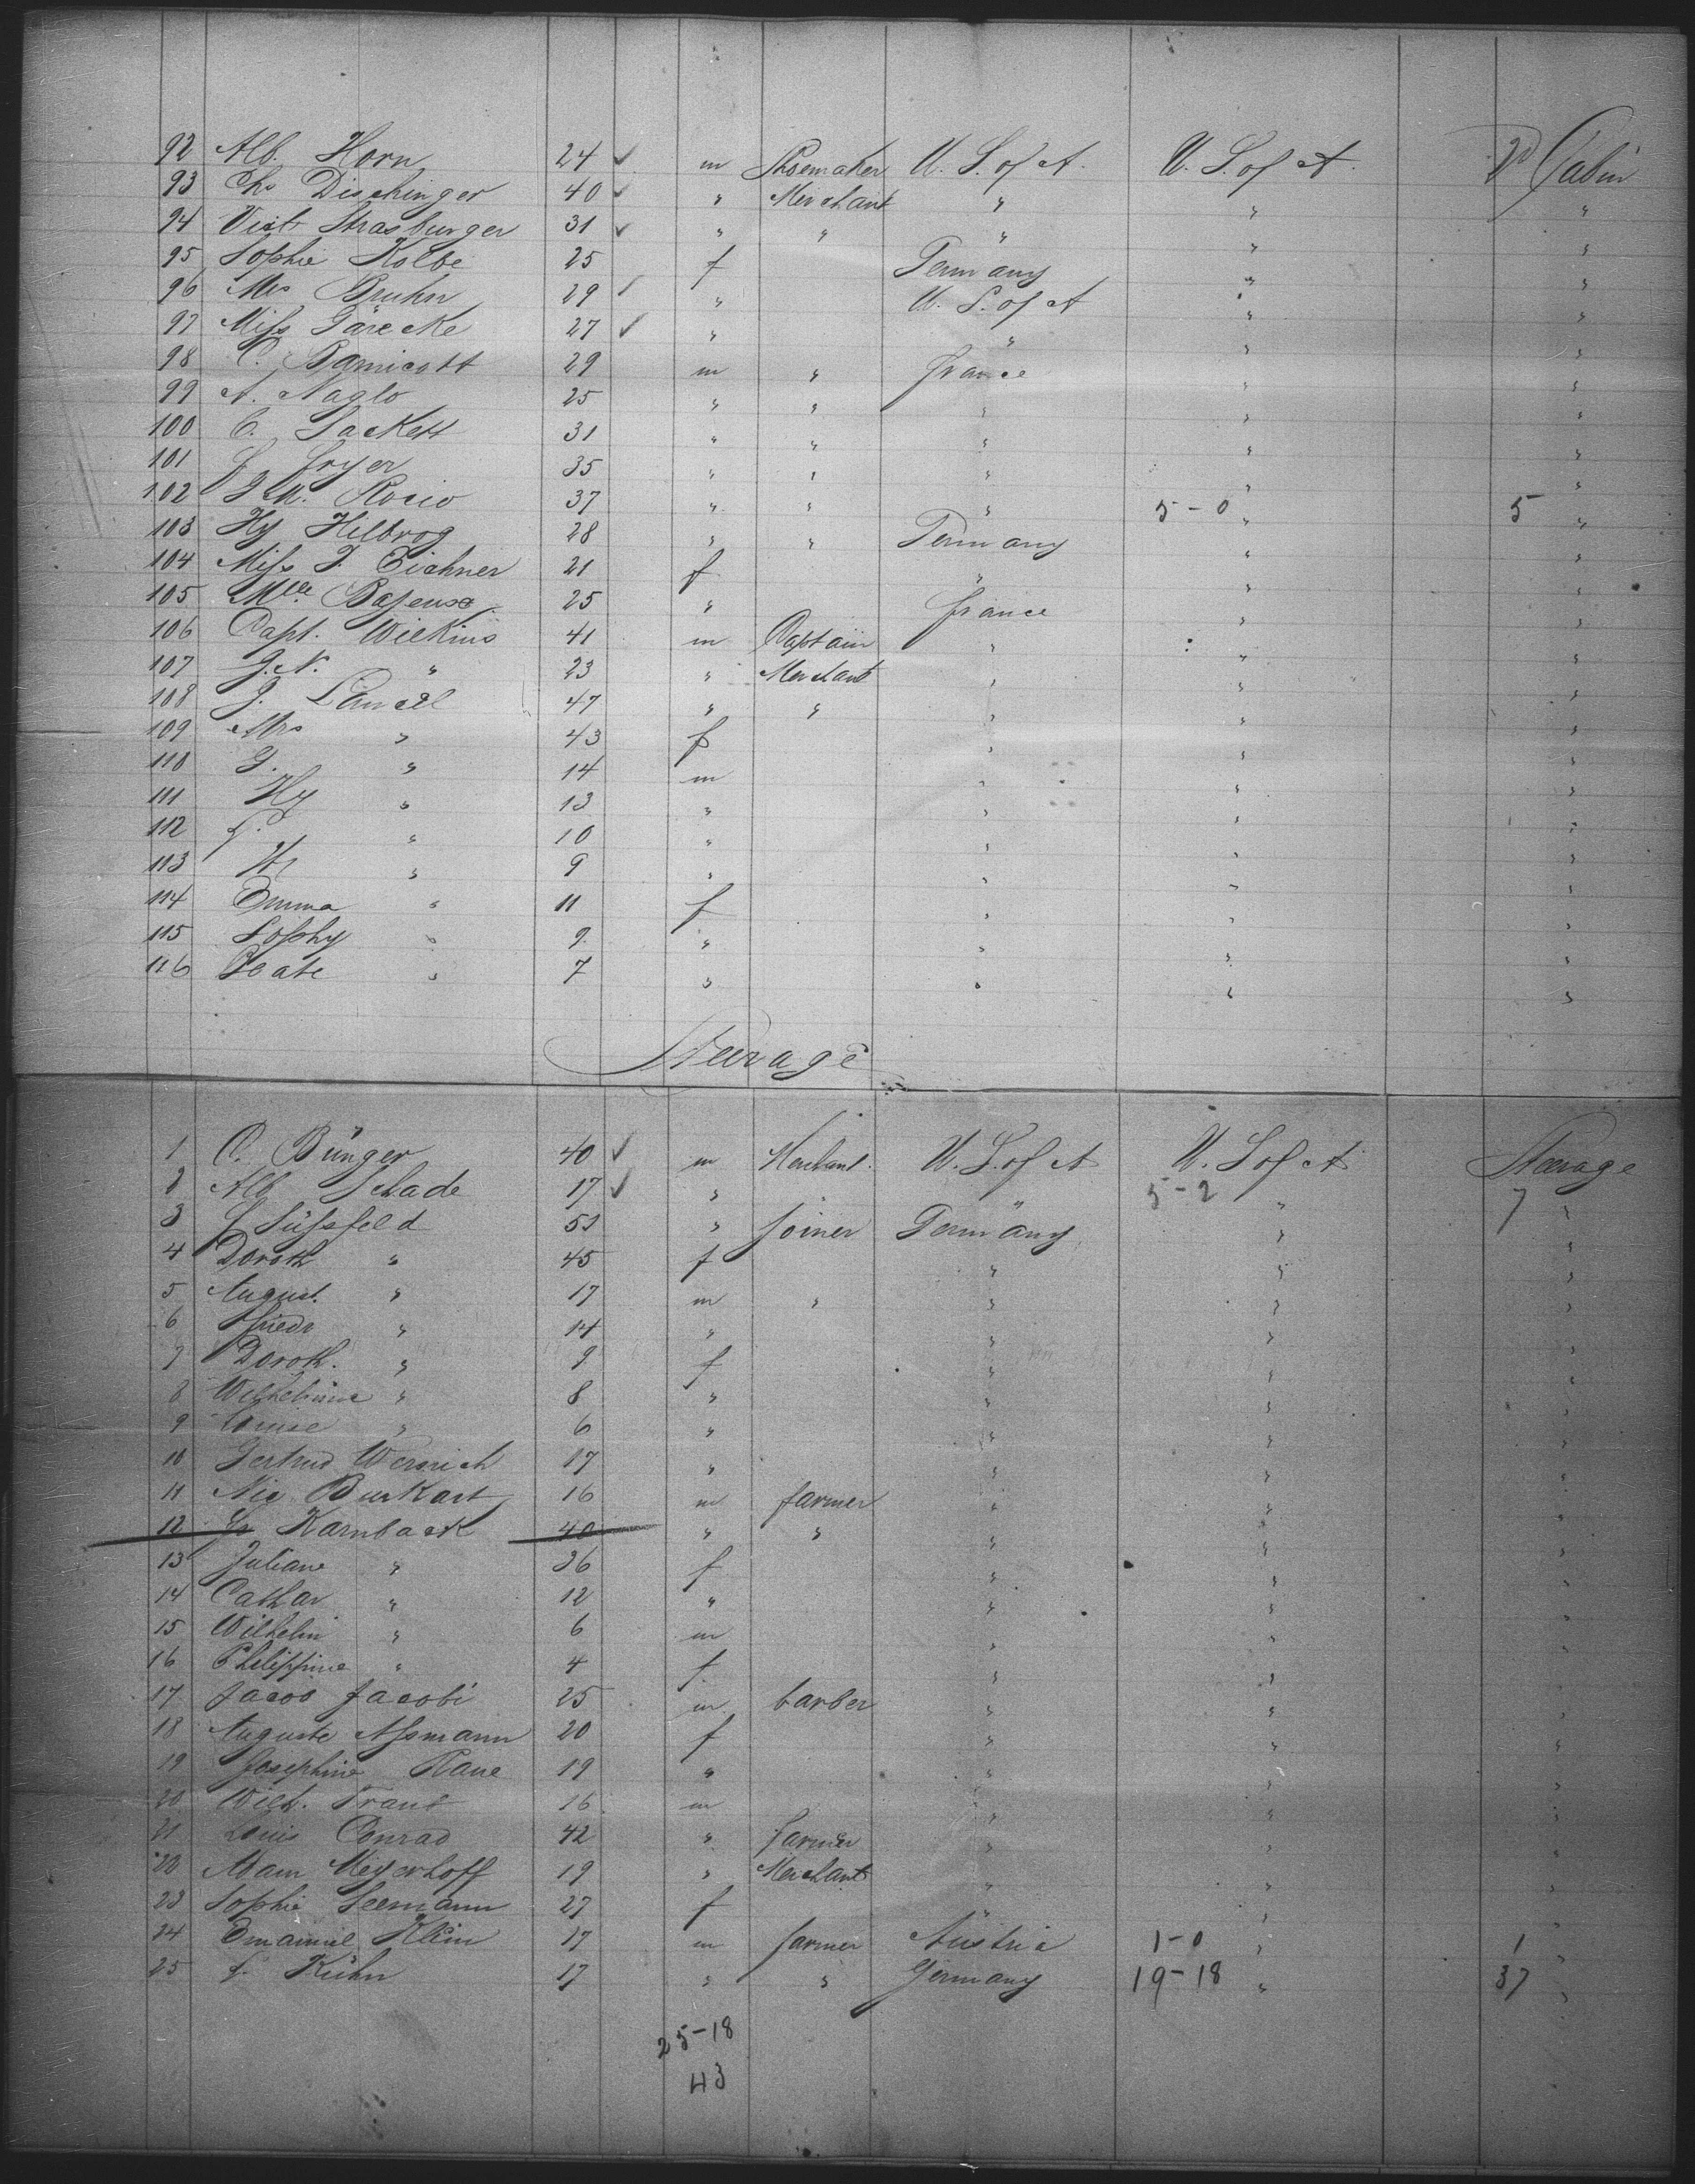 92 Alb. Horn 24 ✓ m Shoemaker U. S. of A. U. S. of A. 2d Cabin
93 Chs Dischinger 40 ✓ " Merchant " " "
94 Vict. Strasburger 31 ✓ " " " " "
95 Sophie Kolbe 25 f Germany " "
96 Mrs Bruhn 29 ✓ " U. S. of A " "
97 Miss Gärecke 27 ✓ " " " "
98 C. Bamicott 29 m " France " "
99 A. Naglo 25 " " " " "
100 C. Sackett 31 " " " " "
101 Fryer 35 " " " " "
102 J. W. Rocio 37 " " " 5-0 " 5 "
103 Hy Hilbrog 28 " " Germany " "
104 Miss J. Eichner 21 f " " "
105 Mlle Bajeuse 25 " France " "
106 Capt. Wilkins 41 m Captain " " "
107 J. N. " 23 " Merchant " " "
108 J. Lancel 47 " " " " "
109 Mrs " 43 f " " "
110 J. " 14 m " " "
111 Hy " 13 " " " "
112 " 10 " " " "
113 " 9 " " " "
114 Emma " 11 f " " "
115 Sophy " 9 " " " "
116 " 7 " " " "
Steerage
1 C. Bünger 40 ✓ m Merchant. U. S. of A U. S of A Steerage
2 Alb Schade 17 ✓ " " 5-2 " 7 "
3 Süssfeld 51 " Joiner Germany " "
4 Doroth " 45 f " " "
5 August. " 17 m " " " "
6 Friedr " 14 " " " "
7 Doroth. " 9 f " " "
8 Wilhelmine " 8 " " " "
9 Louise " 6 " " " "
10 Gertrud Wernich 17 " " " "
11 Nic Burkart 16 m farmer " " "
12 Karnback 40 " " " " "
13 Juliane " 36 f " " "
14 Cathar " 12 " " " "
15 Wilhelm " 6 m " " "
16 Philippine " 4 f " " "
17 Jacob Jacobi 25 m barber " " "
18 Auguste Assmann 20 f " " "
19 Josephine Rane 19 " " " "
20 Wilh. Traut 16 m " " "
21 Louis Conrad 42 " farmer " " "
22 Adam Meyerhoff 19 " Merchant " " "
23 Sophie Seemann 27 f " " "
24 Emanuel Klein 17 m farmer Austria 1-0 " 1 "
25 F. Kühn 17 " " Germany 19-18 " 37 "
25-18
43